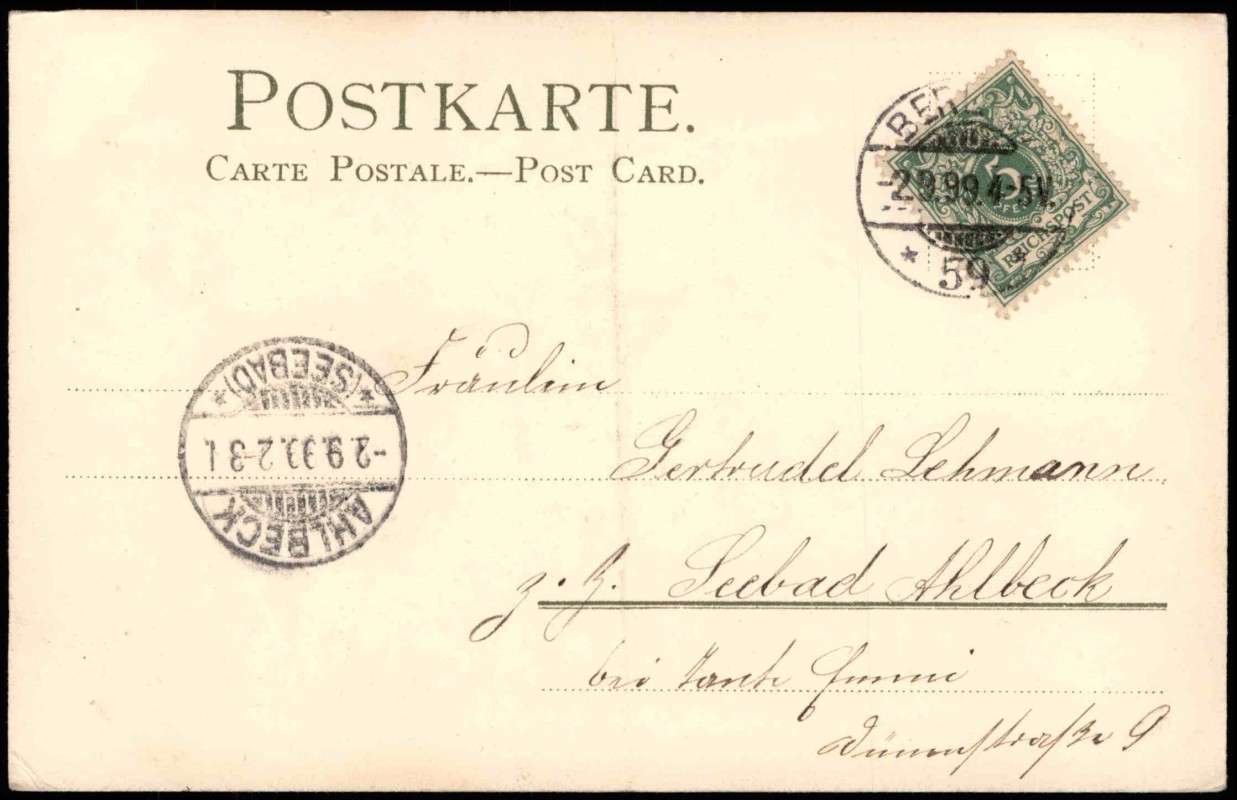 POSTKARTE.
CARTE POSTALE.—POST CARD.
BERL
2.9.99.4-5V.
* 59 *
5
PFE
REICHSPOST
* (SEEBAD) *
-2.9.99.2-3
AHLBECK
Fräulein
Gertrudel Lehmann
z. Z. Seebad Ahlbeck
bei Tante Emmi
Dünenstraße 9